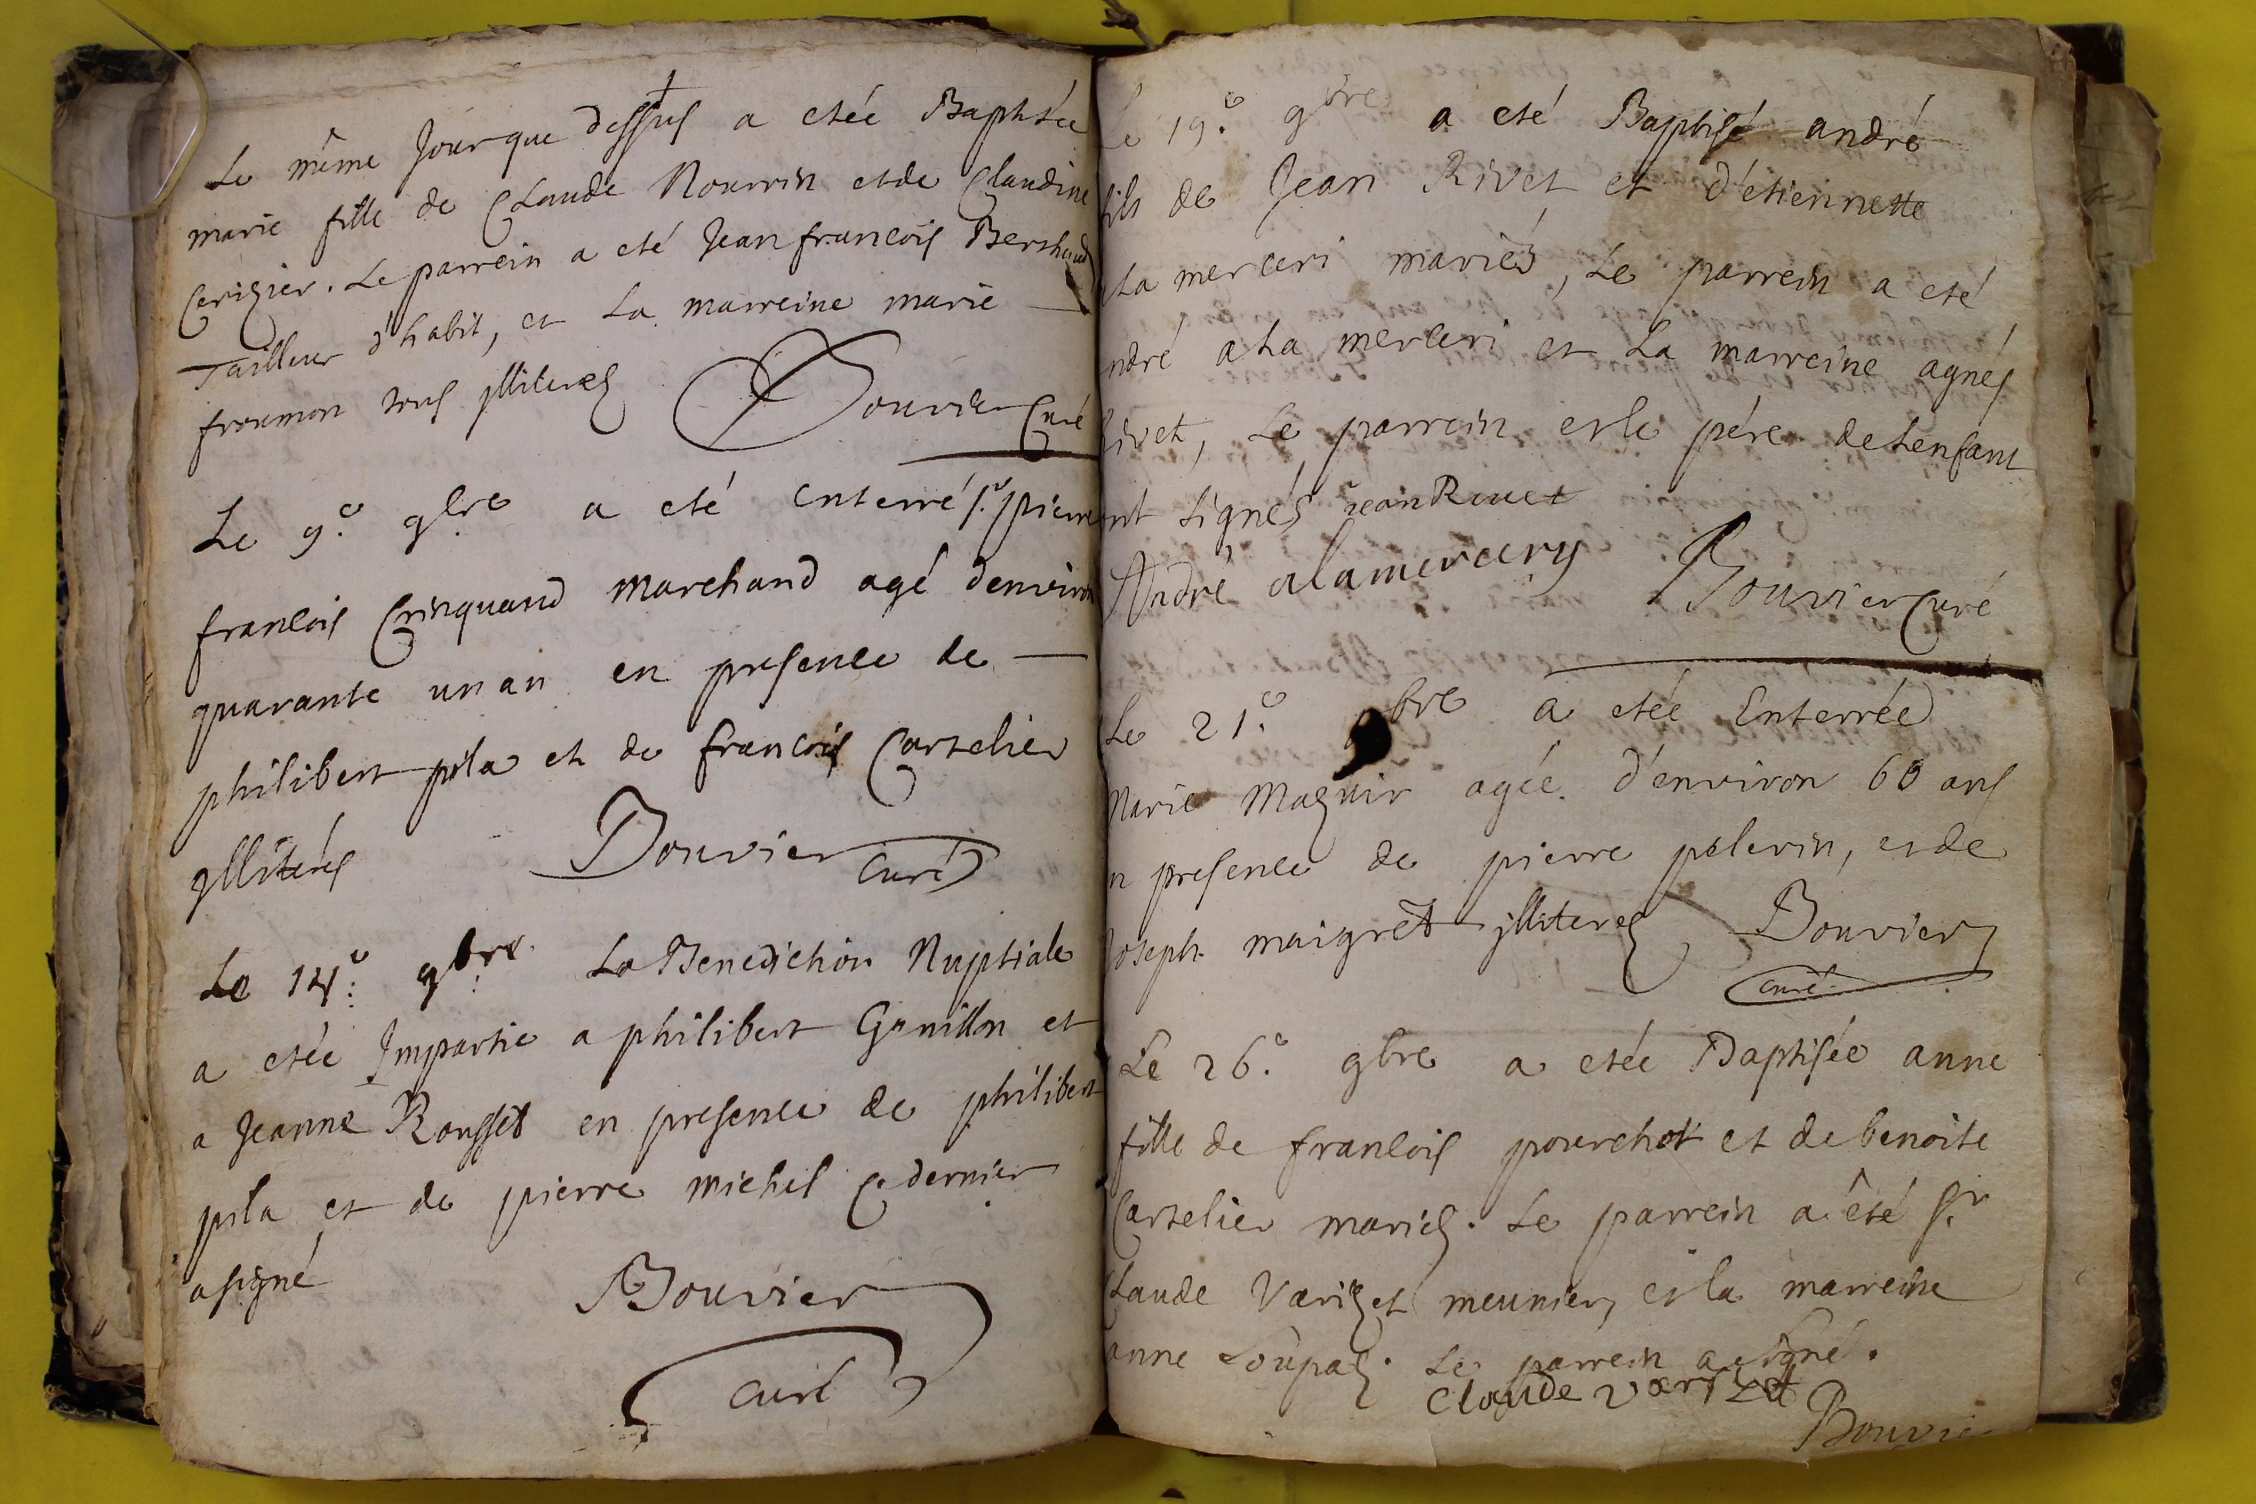 Le même Jour que dessus a etée Baptisée
marie fille de Claude Nourrin et de Claudine
Cerizier. Le parrein a eté Jean francois Berthaud
Tailleur d'habit, et La marreine marie
froumon tous illiteres Bouvier Curé
Le 9.e 9bre a eté enterré s.r pierre
francois Crinquand Marchand agé denviron
quarante un an en presence de
philibert pila et de francois Cartelier
yllitérés Bouvier curé
Le 14.e 9bre La Benediction Nuptiale
a etée Impartie a philibert Gruillon et
a Jeanne Rousset en presence de philibert
pila et de pierre michel Ce dernier
a signé Bouvier
curé
Le 19.e 9bre a eté Baptisé andré
fils de Jean Rivet et d'etiennette
ala merceri mariés, Le parrein a eté
andré ala merceri et La marreine agnés
Rivet, Le parrein et le pére de Lenfant
ont signés jean Rivet
André alamercery Bouvier curé
Le 21.e 9bre a etée Enterrée
Marie agée d'environ 60 ans
en presence de pierre pelerin, et de
Joseph maigret illiteres Bouvier
curé
Le 26.e 9bre a etée Baptisée anne
fille de francois pourchot et de benoite
Cartelier mariés. Le parrein a êté s.r
Claude Varizet meunier, et la marreine
anne Loupaz. Le parrein a signé.
Claude varizet
Bouvier